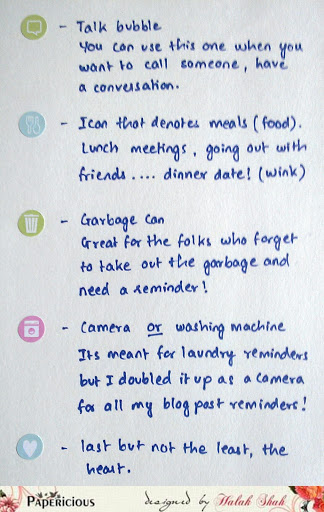 - Talk bubble
You can use this one when you
want to call someone, have
a conversation.
- Icon that denotes meals (food).
Lunch meetings, going out with
friends .... dinner date! (wink)
- Garbage can
Great for the folks who forget
to take out the garbage and
need a reminder!
- Camera or washing machine
Its meant for laundry reminders
but I doubled it up as a camera
for all my blog post reminders!
- last but not the least, the
heart.
PAPERICIOUS designed by Halah Shah